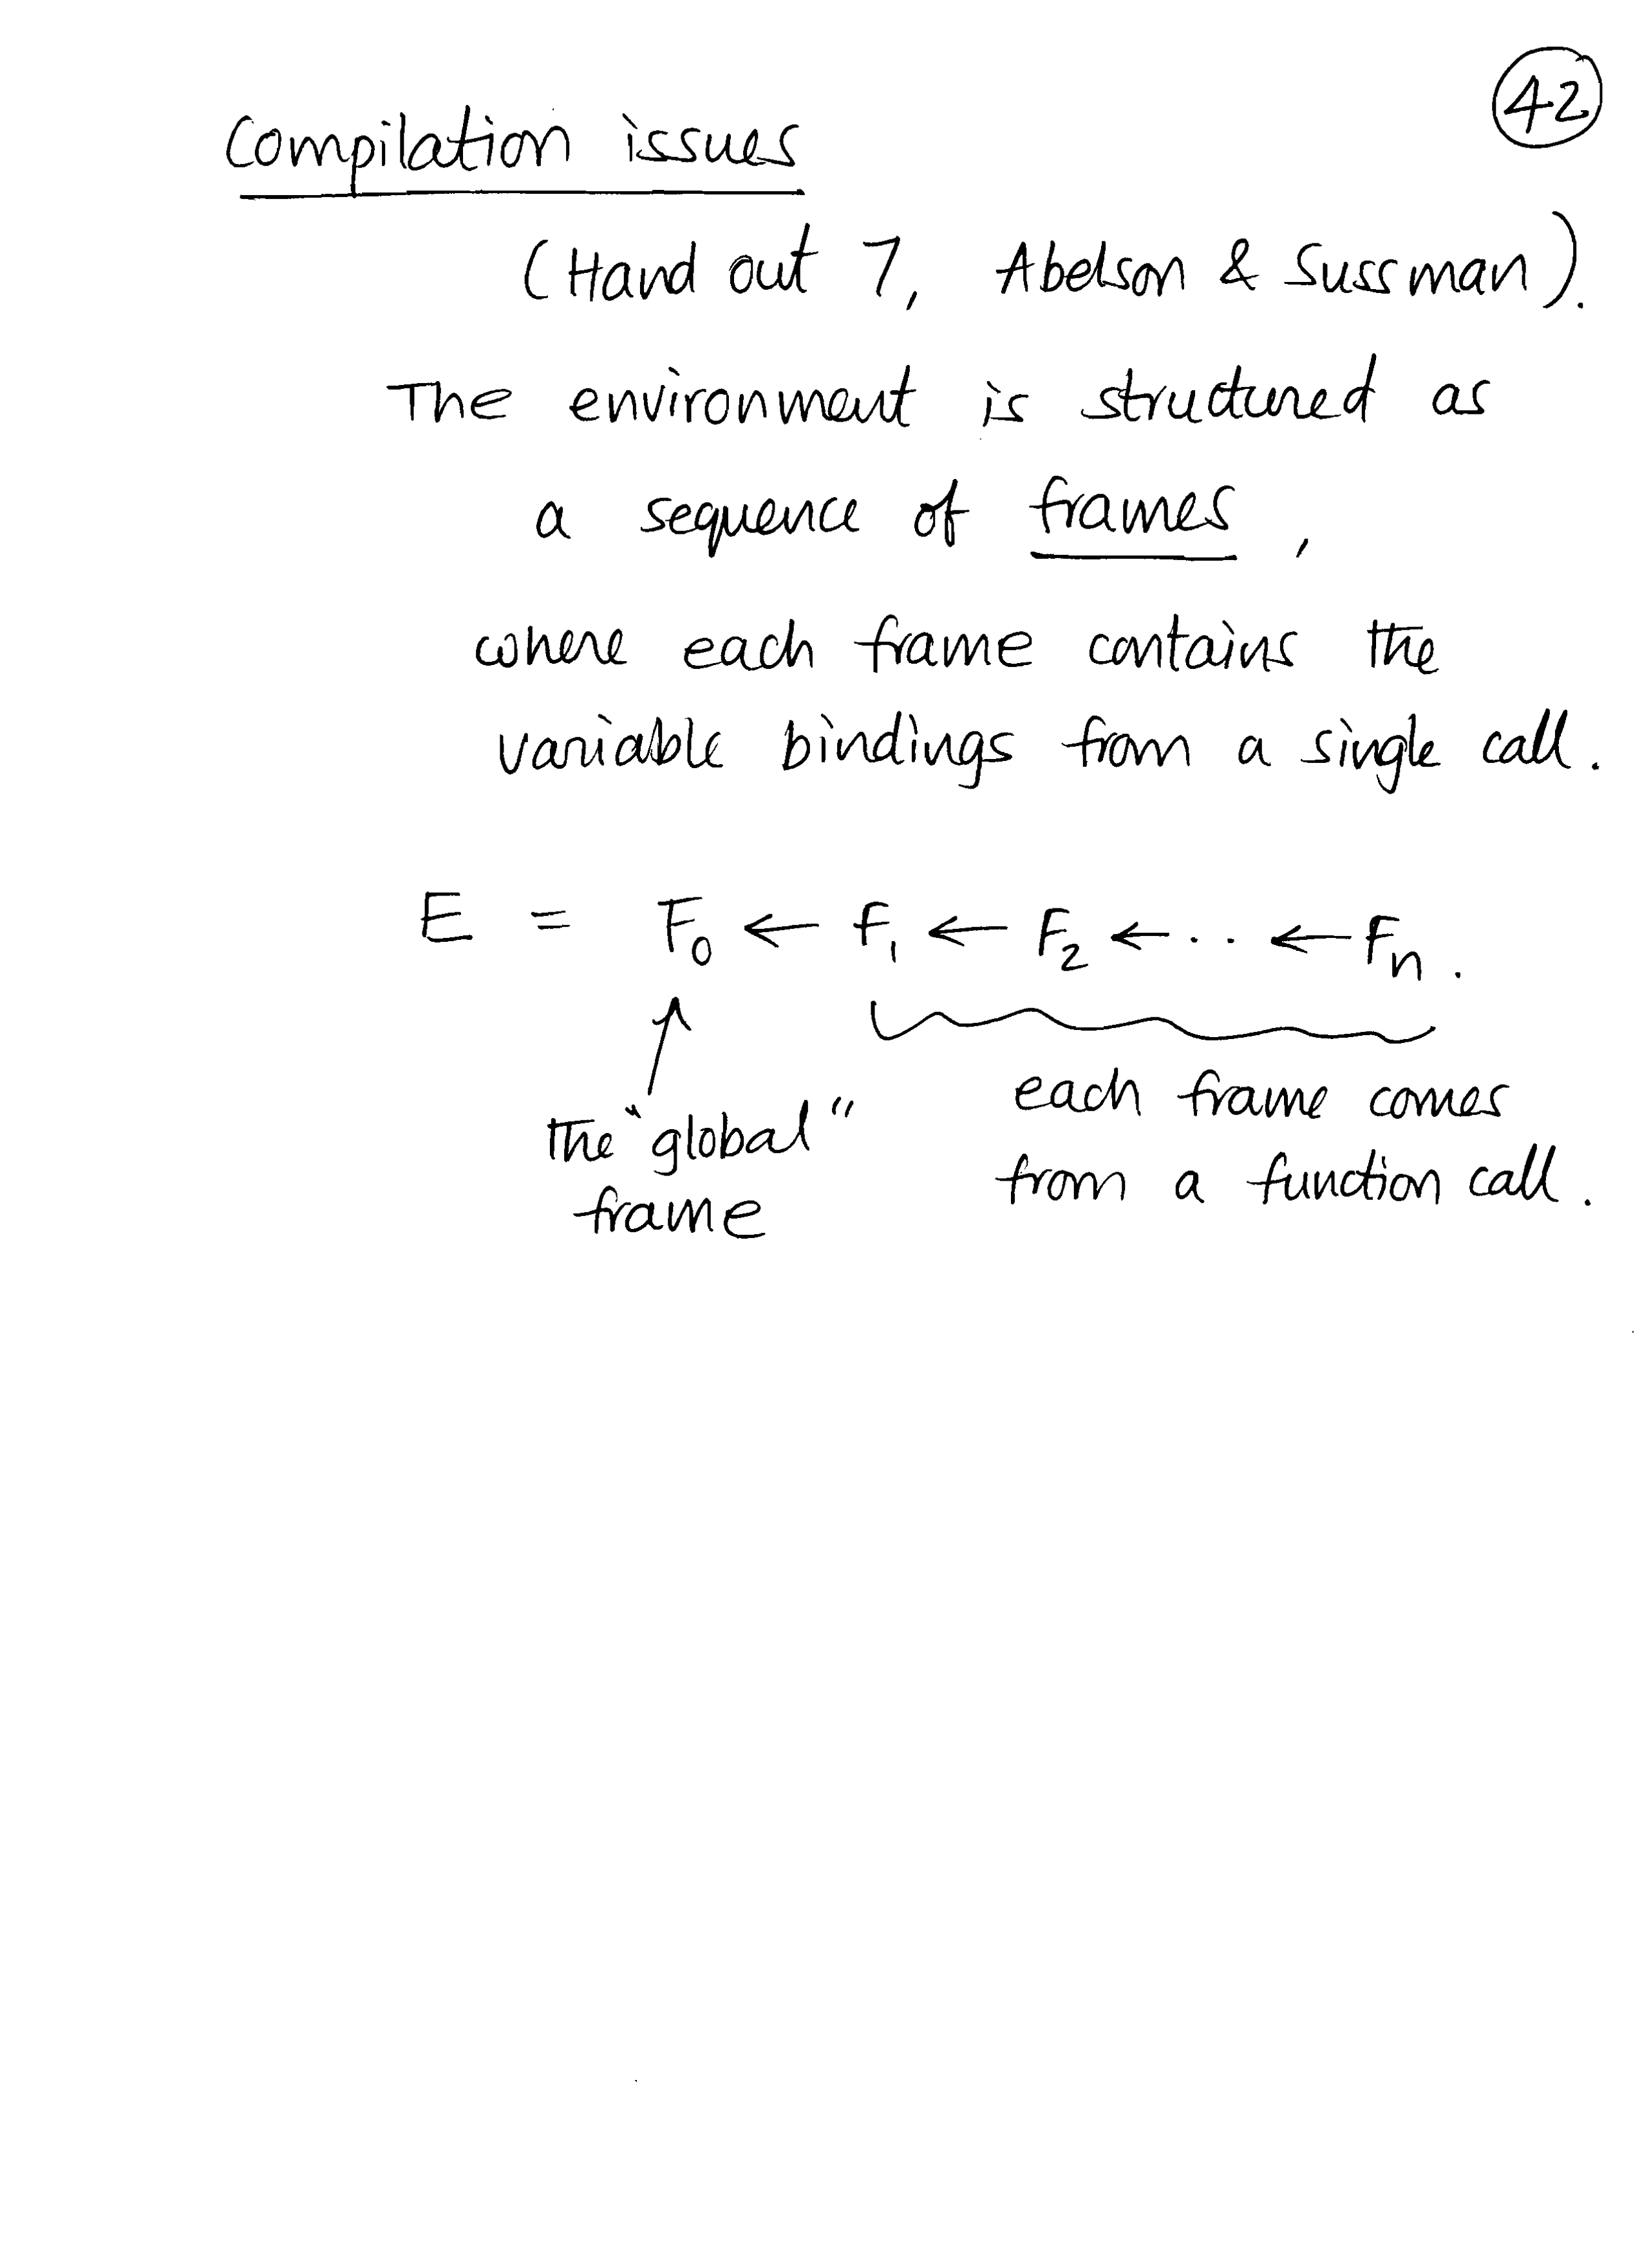 42
Compilation issues
(Hand out 7, Abelson & Sussman).
The environment is structured as
a sequence of frames,
where each frame contains the
variable bindings from a single call.
E = F₀ ← F₁ ← F₂ ← .. ← Fₙ.
the "global"
frame
each frame comes
from a function call.